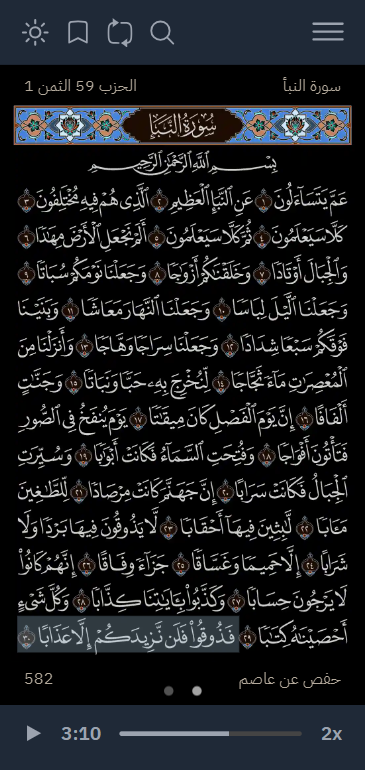 سورة النبأ
الحزب 59 الثمن 1
سُورَةُ النَّبَإِ
بِسْمِ ٱللَّهِ ٱلرَّحْمَٰنِ ٱلرَّحِيمِ
عَمَّ يَتَسَآءَلُونَ ١ عَنِ ٱلنَّبَإِ ٱلْعَظِيمِ ٢ ٱلَّذِى هُمْ فِيهِ مُخْتَلِفُونَ ٣
كَلَّا سَيَعْلَمُونَ ٤ ثُمَّ كَلَّا سَيَعْلَمُونَ ٥ أَلَمْ نَجْعَلِ ٱلْأَرْضَ مِهَٰدًا ٦
وَٱلْجِبَالَ أَوْتَادًا ٧ وَخَلَقْنَٰكُمْ أَزْوَٰجًا ٨ وَجَعَلْنَا نَوْمَكُمْ سُبَاتًا ٩
وَجَعَلْنَا ٱلَّيْلَ لِبَاسًا ١٠ وَجَعَلْنَا ٱلنَّهَارَ مَعَاشًا ١١ وَبَنَيْنَا
فَوْقَكُمْ سَبْعًا شِدَادًا ١٢ وَجَعَلْنَا سِرَاجًا وَهَّاجًا ١٣ وَأَنزَلْنَا مِنَ
ٱلْمُعْصِرَٰتِ مَآءً ثَجَّاجًا ١٤ لِّنُخْرِجَ بِهِۦ حَبًّا وَنَبَاتًا ١٥ وَجَنَّٰتٍ
أَلْفَافًا ١٦ إِنَّ يَوْمَ ٱلْفَصْلِ كَانَ مِيقَٰتًا ١٧ يَوْمَ يُنفَخُ فِى ٱلصُّورِ
فَتَأْتُونَ أَفْوَاجًا ١٨ وَفُتِحَتِ ٱلسَّمَآءُ فَكَانَتْ أَبْوَٰبًا ١٩ وَسُيِّرَتِ
ٱلْجِبَالُ فَكَانَتْ سَرَابًا ٢٠ إِنَّ جَهَنَّمَ كَانَتْ مِرْصَادًا ٢١ لِّلطَّٰغِينَ
مَـَٔابًا ٢٢ لَّٰبِثِينَ فِيهَآ أَحْقَابًا ٢٣ لَّا يَذُوقُونَ فِيهَا بَرْدًا وَلَا
شَرَابًا ٢٤ إِلَّا حَمِيمًا وَغَسَّاقًا ٢٥ جَزَآءً وِفَاقًا ٢٦ إِنَّهُمْ كَانُوا۟
لَا يَرْجُونَ حِسَابًا ٢٧ وَكَذَّبُوا۟ بِـَٔايَٰتِنَا كِذَّابًا ٢٨ وَكُلَّ شَىْءٍ
أَحْصَيْنَٰهُ كِتَٰبًا ٢٩ فَذُوقُوا۟ فَلَن نَّزِيدَكُمْ إِلَّا عَذَابًا ٣٠
حفص عن عاصم
582
3:10
2x